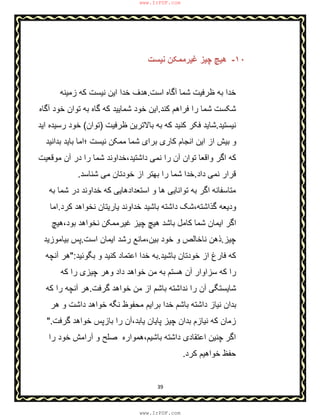 www.IrPDF.com
۱۰- هیچ چیز غیرممکن نیست
خدا به ظرفیت شما آگاه است.هدف خدا این نیست که زمینه
شکست شما را فراهم کند.این خود شمایید که گاه به توان خود آگاه
نیستید.شاید فکر کنید که به بالاترین ظرفیت (توان) خود رسیده اید
و بیش از این انجام کاری برای شما ممکن نیست ؛اما باید بدانید
که اگر واقعا توان آن را نمی داشتید،خداوند شما را در آن موقعیت
قرار نمی داد.خدا شما را بهتر از خودتان می شناسد.
متاسفانه اگر به توانایی ها و استعدادهایی که خداوند در شما به
ودیعه گذاشته،شک داشته باشید خداوند یاریتان نخواهد کرد.اما
اگر ایمان شما کامل باشد هیچ چیز غیرممکن نخواهد بود،هیچ
چیز.ذهن ناخالص و خود بین،مانع رشد ایمان است.پس بیاموزید
که فارغ از خودتان باشید.به خدا اعتماد کنید و بگوئید:"هر آنچه
را که سزاوار آن هستم به من خواهد داد وهر چیزی را که
شایستگی آن را نداشته باشم از من خواهد گرفت.هر آنچه را که
بدان نیاز داشته باشم خدا برایم محفوظ نگه خواهد داشت و هر
زمان که نیازم بدان چیز پایان یابد،آن را بازپس خواهد گرفت."
اگر چنین اعتقادی داشته باشیم،همواره صلح و آرامش خود را
حفظ خواهیم کرد.
39
www.IrPDF.com